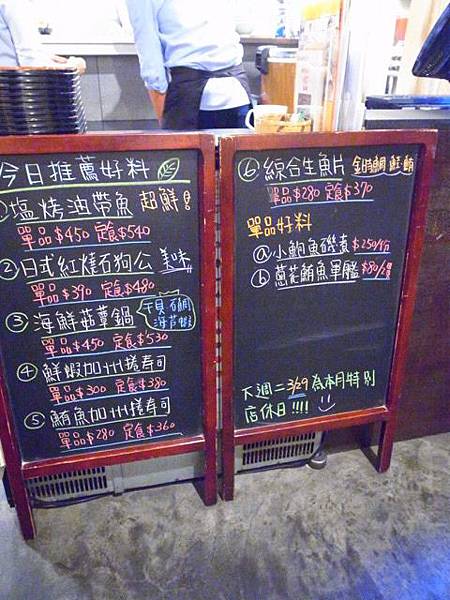 今日推薦好料
①塩烤油帶魚 超鮮!
單品$450 定食$540
②日式紅燒石狗公 美味
單品$390 定食$480
③海鮮菇蕈鍋
干貝 石鯛
海芦蝦
單品$450 定食$530
④鮮蝦加州捲寿司
單品$300 定食$380
⑤鮪魚加州捲寿司
單品$280 定食$360
⑥綜合生魚片 金時鯛 魽 鮪
單品$280 定食$370
單品好料
ⓐ小鮑魚磯煮 $250/份
ⓑ葱花鮪魚軍艦 $80/2貫
下週二 3/29 為本月特別
店休日!!!!